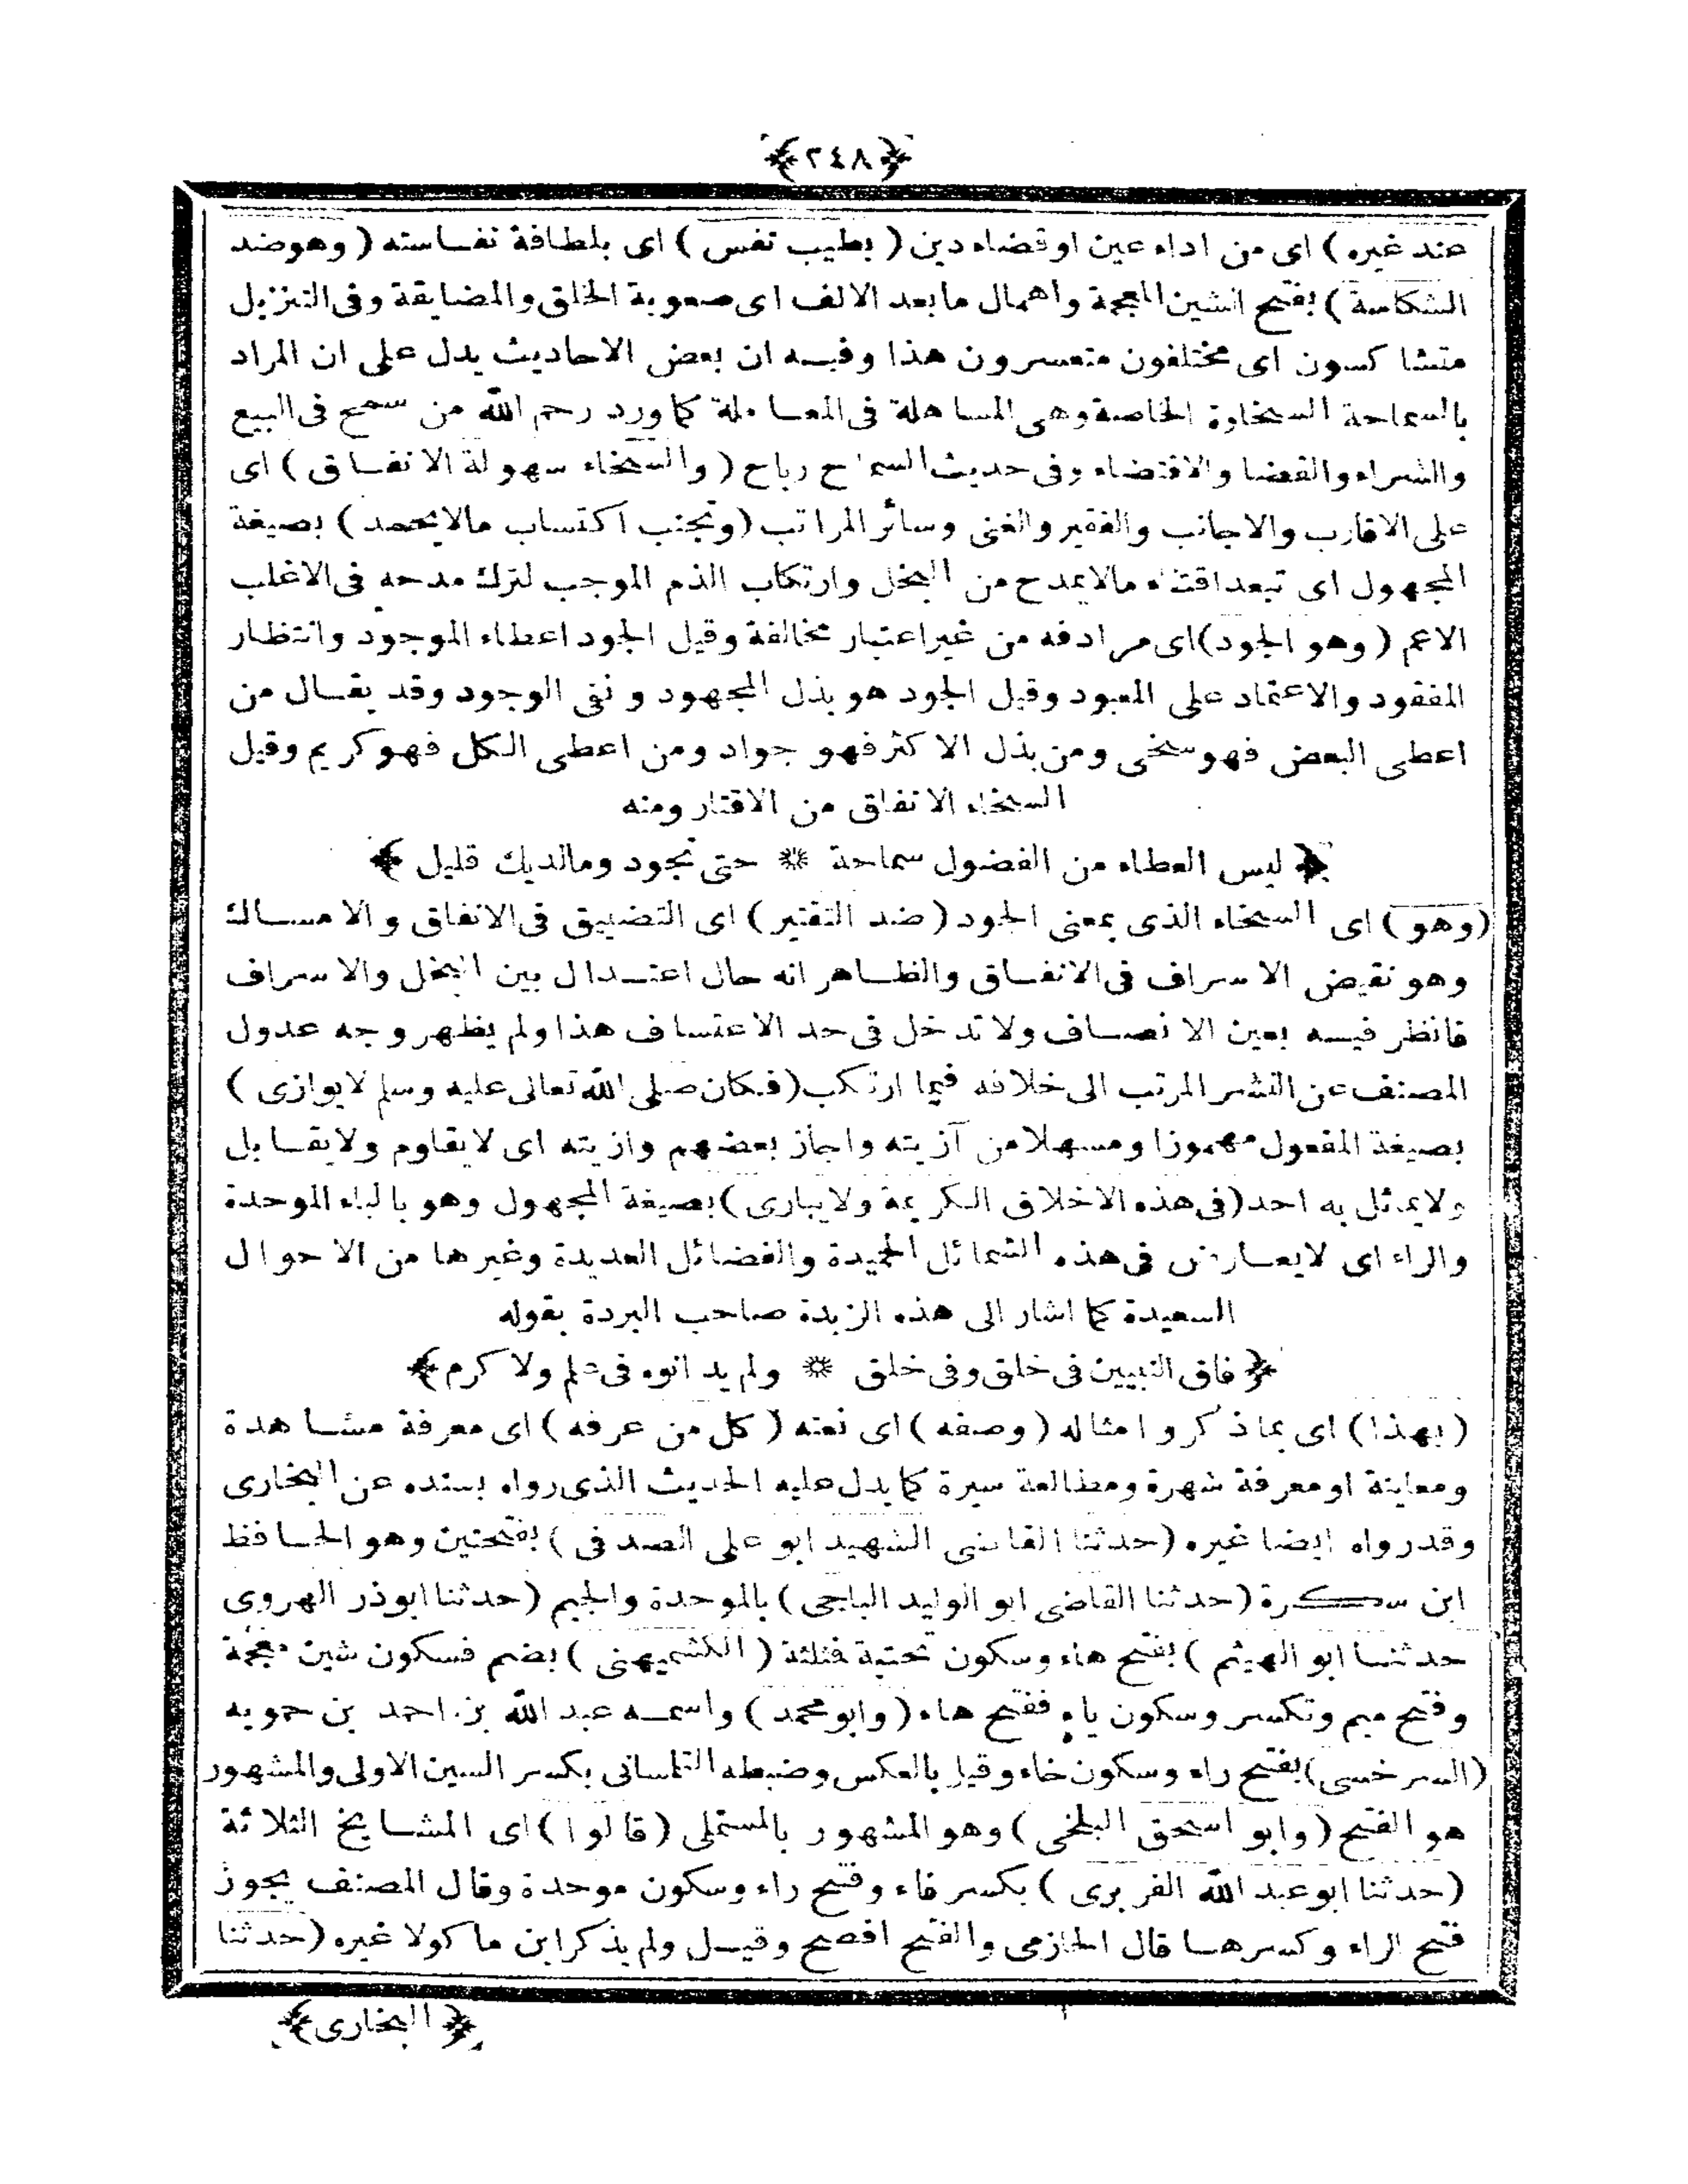 ﴿٢٤٨﴾
عند غيره ) اى من اداء عين اوقضاء دين ( بطيب نفس ) اى بلطافة نفاسته ( وهوضد
الشكاسة ) بفتح الشين المعجمة واهمال مابعد الالف اى صعوبة الخلق والمضايقة وفى التنزيل
متشاكسون اى مختلفون متعسرون هذا وفيه ان بعض الاحاديث يدل على ان المراد
بالسماحة السخاوة الخاصة وهى المساهلة فى المعاملة كما ورد رحم الله من سمح فى البيع
والشراء والقضا والاقتضاء وفى حديث السماح رباح ( والسخاء سهولة الانفاق ) اى
على الاقارب والاجانب والفقير والغنى وسائر المراتب (وتجنب اكتساب مالايحمد ) بصيغة
المجهول اى تبعد اقتناء مالايمدح من البخل وارتكاب الذم الموجب لترك مدحه فى الاغلب
الاعم ( وهو الجود) اى مرادفه من غير اعتبار مخالفة وقيل الجود اعطاء الموجود وانتظار
المفقود والاعتماد على المعبود وقيل الجود هو بذل المجهود و نفى الوجود وقد يقال من
اعطى البعض فهو سخى ومن بذل الاكثر فهو جواد ومن اعطى الكل فهو كريم وقيل
السخاء الانفاق من الاقتار ومنه
﴿ ليس العطاء من الفضول سماحة ❊ حتى تجود ومالديك قليل ﴾
(وهو ) اى السخاء الذى بمعنى الجود ( ضد التقتير ) اى التضييق فى الانفاق والامساك
وهو نقيض الاسراف فى الانفاق والظاهر انه حال اعتدال بين البخل والاسراف
فانظر فيه بعين الانصاف ولا تدخل فى حد الاعتساف هذا ولم يظهر وجه عدول
المصنف عن النشر المرتب الى خلافه فيما ارتكب (فكان صلى الله تعالى عليه وسلم لايوازى )
بصيغة المفعول مهموزا ومسهلا من آزيته واجاز بعضهم وازيته اى لايقاوم ولايقابل
ولايماثل به احد (فى هذه الاخلاق الكريمة ولايبارى ) بصيغة المجهول وهو بالباء الموحدة
والراء اى لايعارض فى هذه الشمائل الحميدة والفضائل العديدة وغيرها من الاحوال
السعيدة كما اشار الى هذه الزبدة صاحب البردة بقوله
﴿ فاق النبيين فى خلق وفى خلق ❊ ولم يدانوه فى علم ولا كرم ﴾
( بهذا ) اى بماذكر وامثاله ( وصفه ) اى نعته ( كل من عرفه ) اى معرفة مشاهدة
ومعاينة او معرفة شهرة ومطالعة سيرة كما يدل عليه الحديث الذى رواه بسنده عن البخارى
وقد رواه ايضا غيره (حدثنا القاضى الشهيد ابو على الصدفى ) بفتحتين وهو الحافظ
ابن سكرة (حدثنا القاضى ابو الوليد الباجى ) بالموحدة والجيم (حدثنا ابوذر الهروى
حدثنا ابو الهيثم ) بفتح هاء وسكون تحتية فثلثة ( الكشميهنى ) بضم فسكون شين معجمة
وفتح ميم وتكسر وسكون ياء ففتح هاء ( وابو محمد ) واسمه عبد الله بن احمد بن حمويه
(السرخسى) بفتح راء وسكون خاء وقيل بالعكس وضبطه التلمسانى بكسر السين الاولى والمشهور
هو الفتح (وابو اسحق البلخى ) وهو المشهور بالمستملى (قالوا ) اى المشايخ الثلاثة
(حدثنا ابو عبد الله الفربرى ) بكسر فاء وفتح راء وسكون موحدة وقال المصنف يجوز
فتح الراء وكسرها قال الحازمى والفتح افصح وقيل ولم يذكر ابن ماكولا غيره (حدثنا
﴿ البخارى﴾